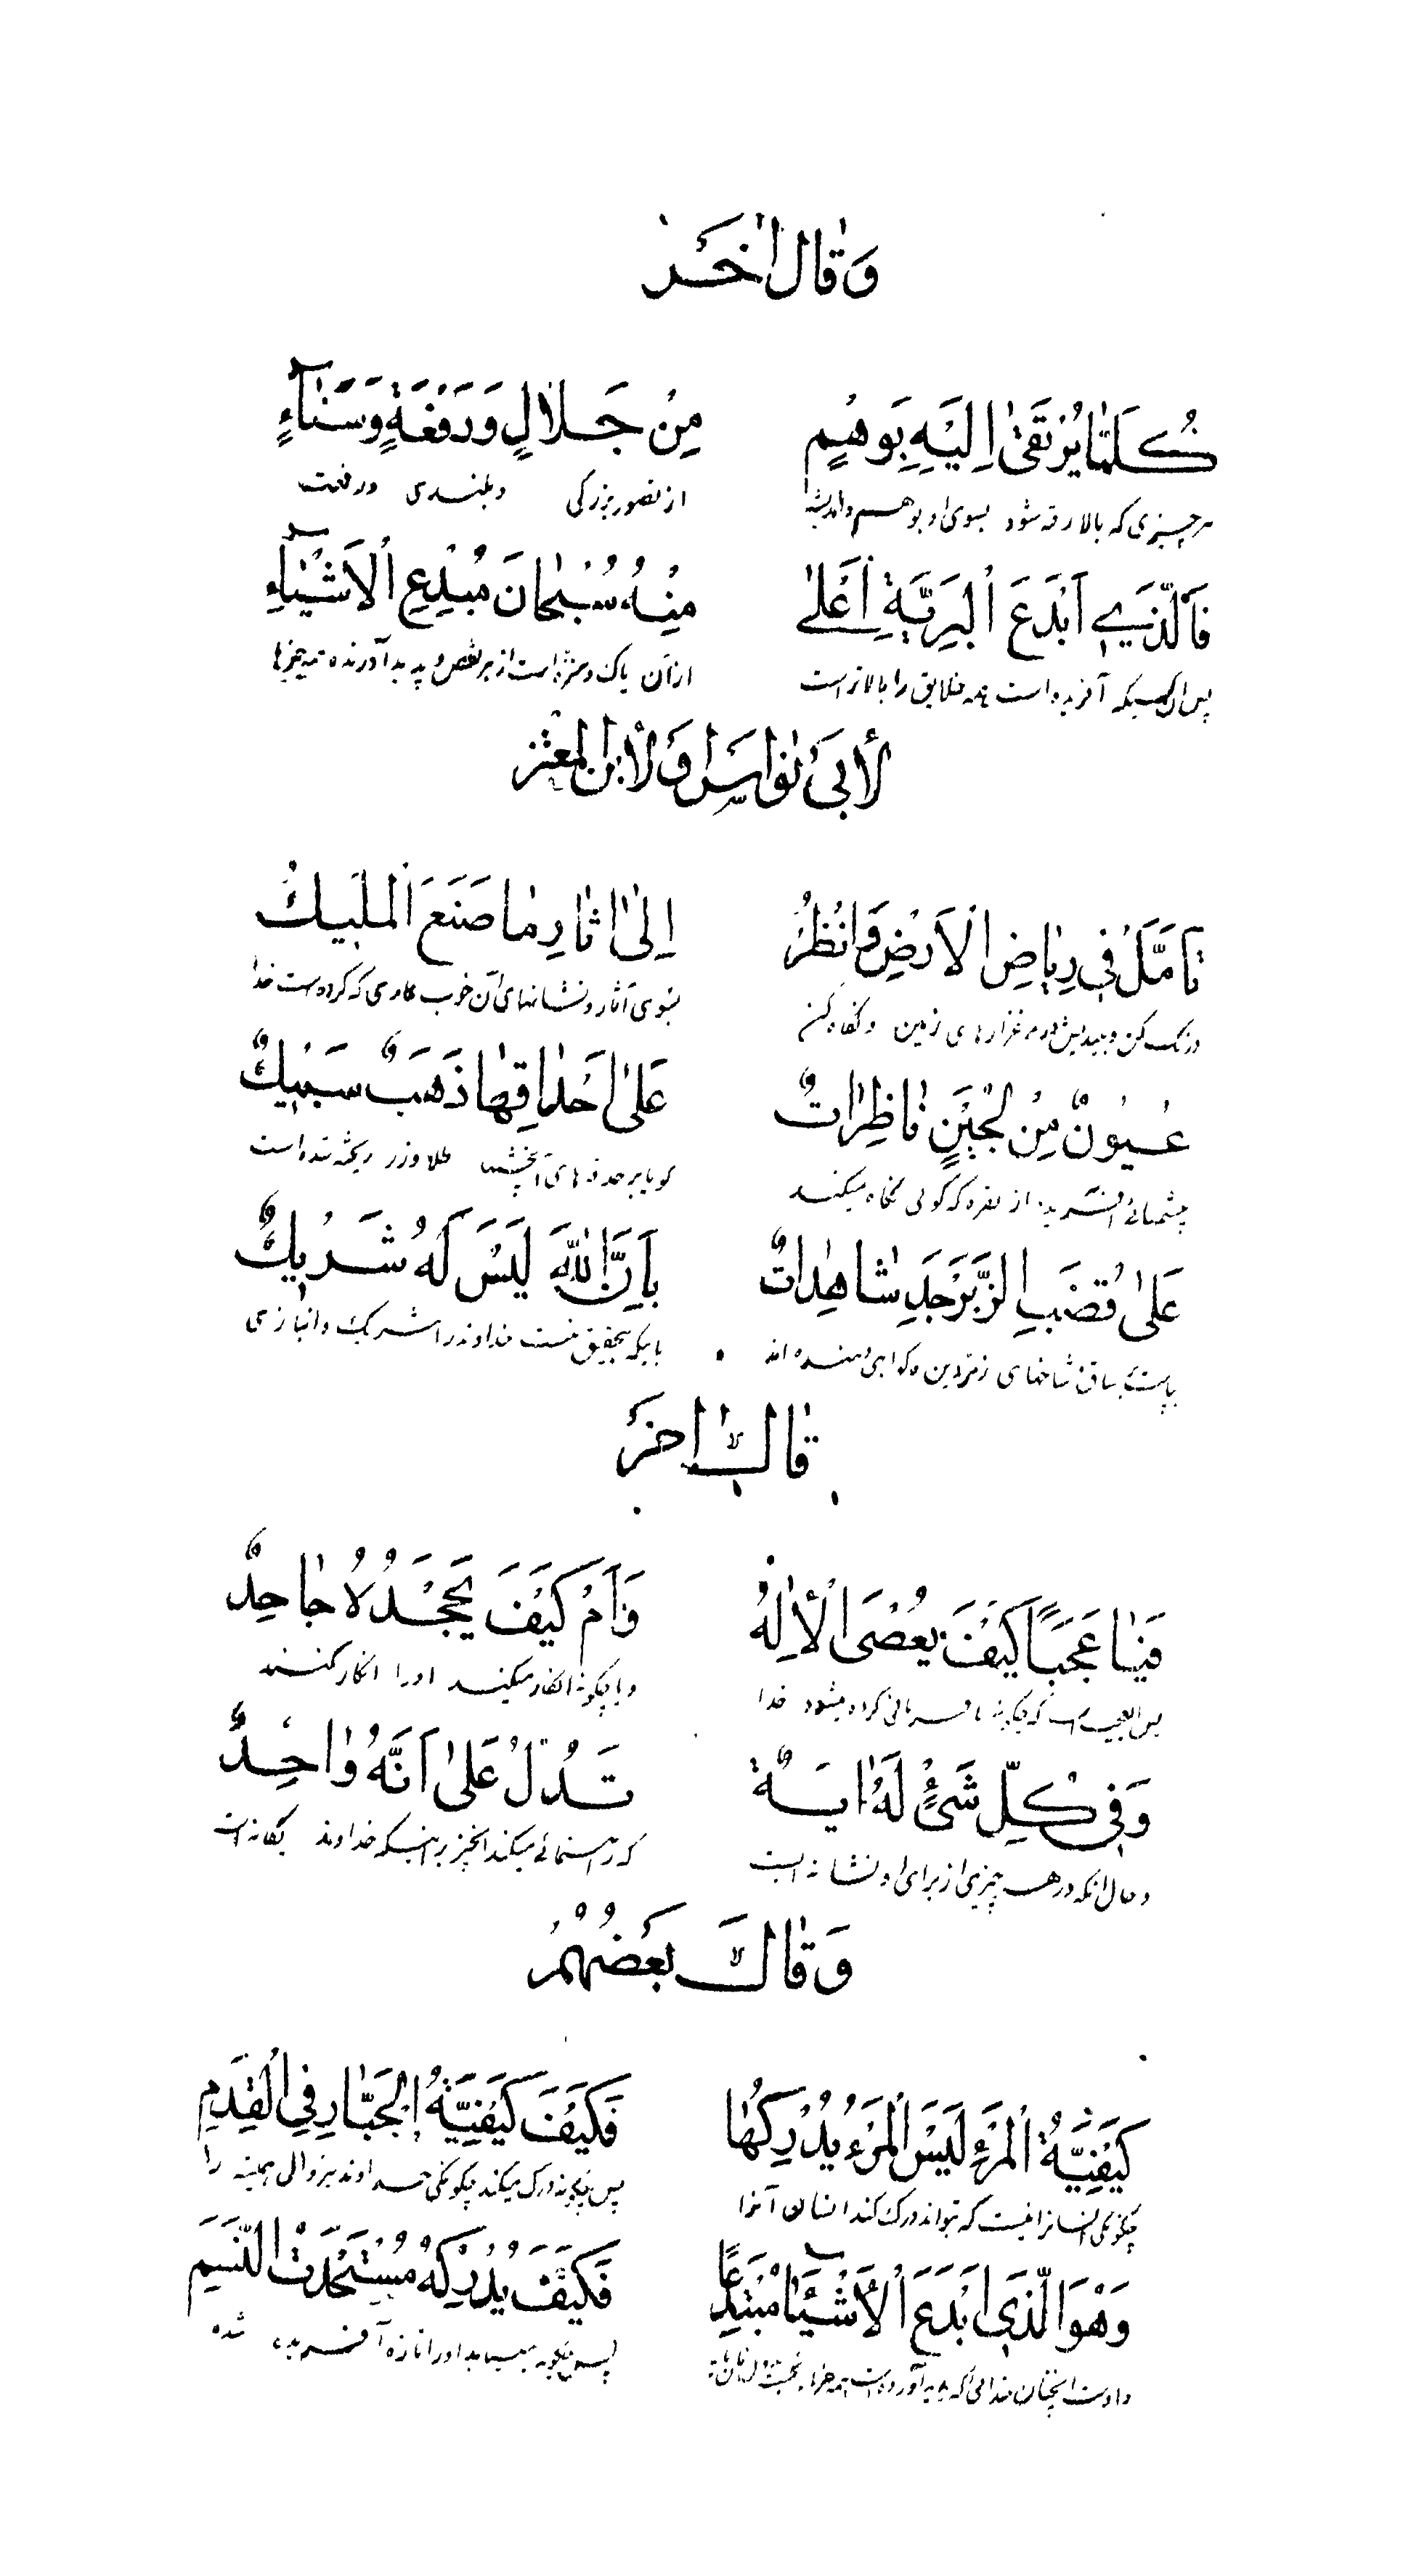 وَقٰالَ اٰخَرُ
كُلَّمٰا يُرْتَقىٰ اِلَيْهِ بِوَهْمٍ مِنْ جَلالٍ وَرَفْعَةٍ وَسَنٰاۤءٍ
هر چیزی که بالا رفته شود بسوی او بوهم و اندیشه از تصور بزرکی و بلندی و رفعت
فَالَّذي اَبْدَعَ الْبَرِيَّةِ اَعْلىٰ مِنْهُ سُبْحٰانَ مُبْدِعِ الْاَشْيٰاۤءِ
پس آن کسیکه آفریده است همه خلایق را بالاتر است از آن پاک و منزه است از هر نقص و پدید آورنده همه چیزها
لأَبي نُواسٍ وَلأبن المعتز
تَأَمَّلْ في رِيٰاضِ الْاَرْضِ وَانْظُرْ اِلىٰ اٰثٰارِ مٰا صَنَعَ الْمَليكُ
درنک کن و بیندیش در مرغزارهای زمین و نکاه کن بسوی آثار و نشانهای آن خوب کاری که کرده است خدا
عُيُونٌ مِنْ لُجَيْنٍ نٰاظِرٰاتٌ عَلىٰ اَحْدٰاقِهٰا ذَهَبٌ سَبيكٌ
چشمهائی آفریده از نقره که کوئی نکاه میکنند کویا بر حدقه های آنچشمها طلا و زر ریخته شده است
عَلىٰ قُضَبِ الزَّبَرْجَدِ شٰاهِدٰاتٌ بِاَنَّ اللّٰهَ لَيْسَ لَهُ شَريكٌ
ساق شاخهای زمردین که واهی دهنده اند باینکه بتحقیق نیست خداوند را شریک و انبازی
قٰالَ اٰخَرُ
فَيٰا عَجَبًا كَيْفَ يُعْصَى الْأِلٰهُ وَاَمْ كَيْفَ يَجْحَدُهُ جٰاحِدٌ
پس ای عجب است که چکونه نافرمانی کرده میشود خدا و یا چکونه انکار میکند او را انکار کننده
وَفي كُلِّ شَيْءٍ لَهُ اٰيَةٌ تَدُلُّ عَلىٰ اَنَّهُ وٰاحِدٌ
و حال آنکه در هر چیزی از برای او نشانه است که راهنمائی میکند آنچیز بر اینکه خداوند یکانه است
وَقٰالَ بَعْضُهُمْ
كَيْفِيَّةُ الْمَرْءِ لَيْسَ الْمَرْءُ يُدْرِكُهٰا فَكَيْفَ كَيْفِيَّةُ الْجَبّٰارِ فِي الْقِدَمِ
چکونکی انسانرا نیست که تواند درک کند انسان آنرا پس چکونه درک میکند چکونکی خداوند بیزوال همیشه را
وَهْوَ الَّذي اَبْدَعَ الْأَشْيٰاۤءَ مُبْتَدِعًا فَكَيْفَ يُدْرِكُهُ مُسْتَحْدَثُ النَّسَمِ
و اوست آنچنان خدائی که پدید آورده است همه چیزها پس چکونه مییابد او را تازه آفریده شده